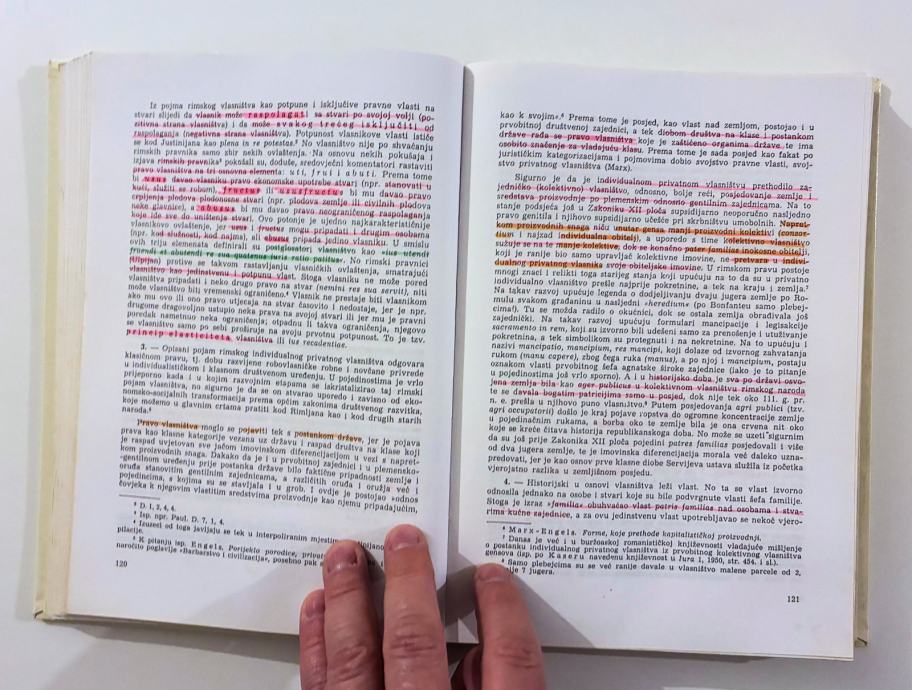 Iz pojma rimskog vlasništva kao potpune i isključive pravne vlasti na
stvari slijedi da vlasnik može raspolagati sa stvari po svojoj volji (po-
zitivna strana vlasništva) i da može svakog trećeg isključiti od
raspolaganja (negativna strana vlasništva). Potpunost vlasnikove vlasti ističe
se kod Justinijana kao plena in re potestas.² No vlasništvo nije po shvaćanju
rimskih pravnika samo zbir nekih ovlaštenja. Na osnovu nekih pokušaja i
izjava rimskih pravnika³ pokušali su, doduše, sredovječni komentatori rastaviti
pravo vlasništva na tri osnovna elementa: uti, frui i abuti. Prema tome
bi usus davao vlasniku pravo ekonomske upotrebe stvari (npr. stanovati u
kući, služiti se robom), fructus ili ususfructus bi mu davao pravo
crpljenja plodova plodonosne stvari (npr. plodova zemlje ili civilnih plodova
neke glavnice), a abusus bi mu davao pravo neograničenog raspolaganja
koje ide sve do uništenja stvari. Ovo potonje je ujedno najkarakterističnije
vlasnikovo ovlaštenje, jer usus i fructus mogu pripadati i drugim osobama
(npr. kod služnosti, kod najma), ali abusus pripada jedino vlasniku. U smislu
ovih triju elemenata definirali su postglosatori vlasništvo kao »ius utendi
fruendi et abutendi re sua quatenus iuris ratio patitur«. No rimski pravnici
(Ulpijan) protive se takvom rastavljanju vlasničkih ovlaštenja, smatrajući
vlasništvo kao jedinstvenu i potpunu vlast. Stoga vlasniku ne može pored
vlasništva pripadati i neko drugo pravo na stvar (nemini res sua servit), niti
može vlasništvo biti vremenski ograničeno.⁴ Vlasnik ne prestaje biti vlasnikom
ako mu ovo ili ono pravo utjecaja na stvar časovito i nedostaje, jer je npr.
drugome dragovoljno ustupio neka prava na svojoj stvari ili jer mu je pravni
poredak nametnuo neka ograničenja; otpadnu li takva ograničenja, njegovo
se vlasništvo samo po sebi proširuje na svoju prvotnu potpunost. To je tzv.
princip elasticiteta vlasništva ili ius recadentiae.
3. — Opisani pojam rimskog individualnog privatnog vlasništva odgovara
klasičnom pravu, tj. dobu razvijene robovlasničke robne i novčane privrede
u individualističkom i klasnom društvenom uređenju. U pojedinostima je vrlo
prijeporno kada i u kojim razvojnim etapama se iskristalizirao taj rimski
pojam vlasništva, no sigurno je da se on stvarao uporedo i zavisno od eko-
nomsko-socijalnih transformacija prema općim zakonima društvenog razvitka,
koje možemo u glavnim crtama pratiti kod Rimljana kao i kod drugih starih
naroda.⁵
Pravo vlasništva moglo se pojaviti tek s postankom države, jer je pojava
prava kao klasne kategorije vezana uz državu i raspad društva na klase koji
je raspad uvjetovan sve jačom imovinskom diferencijacijom u vezi s napret-
kom proizvodnih snaga. Dakako da je i u prvobitnoj zajednici i u plemensko-
-gentilnom uređenju prije postanka države bilo faktične pripadnosti zemlje i
oruđa stanovitim gentilnim zajednicama, a različitih oruđa i oružja već i
pojedincima, s kojima su se stavljala i u grob. I ovdje je postojao »odnos
čovjeka k njegovim vlastitim sredstvima proizvodnje kao njemu pripadajućim,
² D. I, 2, 4, 4.
³ Isp. npr. Paul. D. 7, 1, 4.
⁴ Izuzeci od toga javljaju se tek u interpoliranim mjestima
pilacije.
⁵ K pitanju isp. Engels, Porijeklo porodice,
naročito poglavlje »Barbarstvo i civilizacija«, posebno pak
120
kao k svojim«.⁶ Prema tome je posjed, kao vlast nad zemljom, postojao i u
prvobitnoj društvenoj zajednici, a tek diobom društva na klase i postankom
države rađa se pravo vlasništva koje je zaštićeno organima države te ima
osobito značenje za vladajuću klasu. Prema tome je sada posjed kao fakat po
jurističkim kategorizacijama i pojmovima dobio svojstvo pravne vlasti, svoj-
stvo privatnog vlasništva (Marx).
Sigurno je da je individualnom privatnom vlasništvu prethodilo za-
jedničko (kolektivno) vlasništvo, odnosno, bolje reći, posjedovanje zemlje i
sredstava proizvodnje po plemenskim odnosno gentilnim zajednicama. Na to
stanje podsjeća još u Zakoniku XII ploča supsidijarno neoporučno nasljedno
pravo gentila i njihovo supsidijarno učešće pri skrbništvu umobolnih. Napret-
kom proizvodnih snaga niču unutar gensa manji proizvodni kolektivi (consor-
tium i najzad individualna obitelj), a uporedo s time kolektivno vlasništvo
sužuje se na te manje kolektive, dok se konačno pater familias inokosne obitelji,
koji je ranije bio samo upravljač kolektivne imovine, ne pretvara u indivi-
dualnog privatnog vlasnika svoje obiteljske imovine. U rimskom pravu postoje
mnogi znaci i relikti toga starijeg stanja koji upućuju na to da su u privatno
individualno vlasništvo prešle najprije pokretnine, a tek na kraju i zemlja.⁷
Na takav razvoj upućuje legenda o dodjeljivanju dvaju jugera zemlje po Ro-
mulu svakom građaninu u nasljedni »heredium« (po Bonfanteu samo plebej-
cima!). Tu se možda radilo o okućnici, dok se ostala zemlja obrađivala još
zajednički. Na takav razvoj upućuju formulari mancipacije i legisakcije
sacramento in rem, koji su izvorno bili udešeni samo za prenošenje i utuživanje
pokretnina, a tek simbolikom su protegnuti i na nekretnine. Na to upućuju i
nazivi mancipatio, mancipium, res mancipi, koji dolaze od izvornog zahvatanja
rukom (manu capere), zbog čega ruka (manus), a po njoj i mancipium, postaju
oznakom vlasti prvobitnog šefa agnatske široke zajednice (iako je to pitanje
u pojedinostima još vrlo sporno). A i u historijsko doba je sva po državi osvo-
jena zemlja bila kao ager publicus u kolektivnom vlasništvu rimskog naroda
te se davala bogatim patricijima samo u posjed, dok nije tek oko 111. g. pr.
n. e. prešla u njihovo puno vlasništvo.⁸ Putem posjedovanja agri publici (tzv.
agri occupatorii) došlo je kraj pojave ropstva do ogromne koncentracije zemlje
u pojedinačnim rukama, a borba oko te zemlje bila je ona crvena nit oko
koje se kreće čitava historija republikanskoga doba. No može se uzeti sigurnim
da su još prije Zakonika XII ploča pojedini patres familias posjedovali i više
od dva jugera zemlje, te je imovinska diferencijacija morala već daleko uzna-
predovati, jer je kao osnov prve klasne diobe Servijeva ustava služila iz početka
vjerojatno razlika u zemljišnom posjedu.
4. — Historijski u osnovi vlasništva leži vlast. No ta se vlast izvorno
odnosila jednako na osobe i stvari koje su bile podvrgnute vlasti šefa familije.
Stoga je izraz »familia« obuhvaćao vlast patris familias nad osobama i stva-
rima kućne zajednice, a za ovu jedinstvenu vlast upotrebljavao se nekoć vjero-
⁶ Marx-Engels, Forme, koje prethode kapitalističkoj proizvodnji.
⁷ Danas je već i u buržoaskoj romanističkoj književnosti vladajuće mišljenje
o postanku individualnog privatnog vlasništva iz prvobitnog kolektivnog vlasništva
gensova (isp. po Kaseru navedenu književnost u Iura 1, 1950, str. 454. i sl.).
⁸ Samo plebejcima su se već ranije davale u vlasništvo malene parcele od 2,
7 jugera.
121